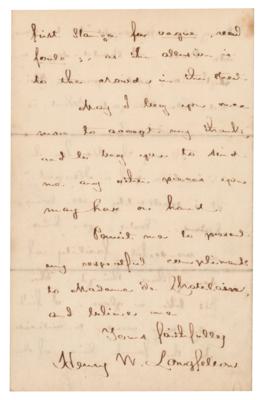 first stanza for vogue, read
foule; as the allusion is
to the crowds in the
May I beg you once
more to accept my thanks,
and to beg you to send
me any other pieces you
may have on hand.
Permit me to present
my respectful compliments
to Madame de Chatelain,
and believe me
Yours faithfully
Henry W. Longfellow